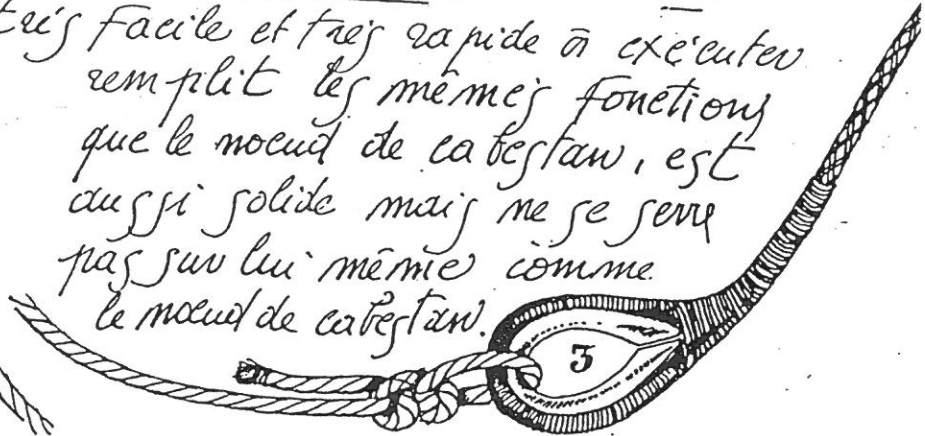 très facile et très rapide à exécuter
remplit les mêmes fonctions
que le noeud de cabestan, est
aussi solide mais ne se serre
pas sur lui même comme
le noeud de cabestan.
3